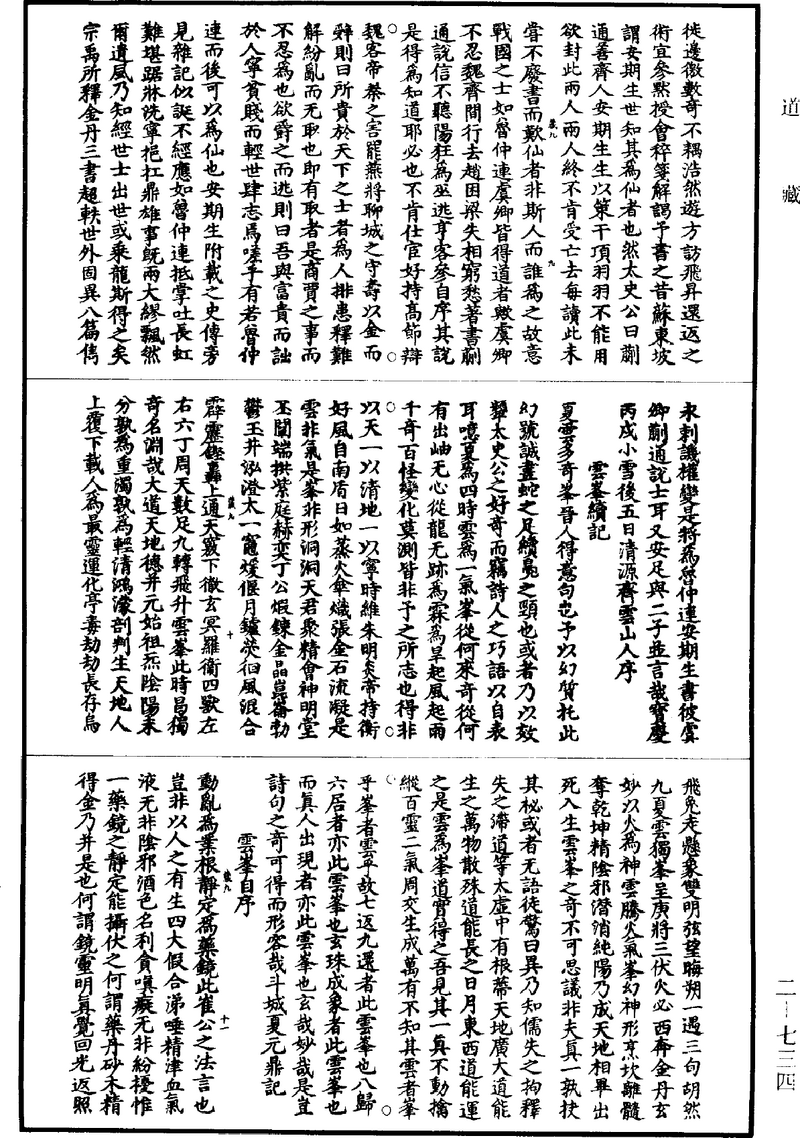 道藏
徙邊徼數奇不耦浩然遊方訪飛昇還返之
術宜參黙授會稡箋解謁予書之昔蘇東坡
謂安期生世知其為仙者也然太史公曰蒯
通善齊人安期生生以䇿干項羽羽不能用
欲封此兩人兩人終不肯受亡去每讀此未
嘗不廢書而歎仙者非斯人而誰為之故意
戰國之士如魯仲連虞卿皆得道者歟虞卿
不忍魏齊間行去趙困梁失相窮愁著書蒯
通說信不聽陽狂為巫逃亨客參自序其說
是得為知道耶必也不肯仕宦好持高節辯
魏客帝秦之害罷燕將聊城之守壽以金而
辤則曰所貴於天下之士者為人排患釋難
解紛亂而无取也即有取者是商賈之事而
不忍為也欲爵之而逃則曰吾與富貴而詘
於人寧貧賤而輕世肆志焉嗟乎有若魯仲
連而後可以為仙也安期生附載之史傳旁
見雜記似誕不經應如魯仲連抵掌吐長虹
難堪踞牀洗寧挹扛鼎雄事既兩大繆飄然
爾遺風乃知經世士出世或乘龍斯得之矣
宗禹所釋金丹三書超軼世外固異八篇雋
永刺譏權變是將為魯仲連安期生書彼虞
卿蒯通說士耳又安足與二子並言哉寳慶
丙戌小雪後五日清源齊雲山人序
雲峯續記
夏雲多奇峯晉人得意句也予以幻質托此
幻號誠畫蛇之足續鳧之頸也或者乃以效
顰太史公之好奇而竊詩人之巧語以自表
耳噫夏為四時雲為一氣峯從何來奇從何
有出岫无心從龍无跡為霖為旱起風起雨
千奇百怪變化莫測皆非予之所志也得非
以天一以清地一以寧時維朱明炎帝持衡
好風自南盾日如蒸火傘熾張金石流凝是
雲非氣是峯非形洞洞天君聚精會神明堂
玉闕端拱紫庭赫奕丁公煆鍊金晶崑崙勃
鬱玉井泓澄太一竈煖偃月鑪熒徊風混合
霹靂鏗轟上通天竅下徹玄冥羅衛四獸左
右六丁周天數足九轉飛升雲峯此時昌獨
奇名淵哉大道天地德并元始祖炁陰陽未
分孰為重濁孰為輕清鴻濛剖判生天地人
上覆下載人為最靈運化亭毒劫劫長存烏
飛兔走懸象雙明弦望晦朔一遇三旬胡然
九夏雲獨峯呈庚將三伏火必西奔金丹玄
妙以火為神雲騰火氣峯幻神形烹坎離髓
奪乾坤精陰邪潛消純陽乃成天地相畢出
死入生雲峯之奇不可思議非夫真一孰抉
其秘或者无語徒驚曰異乃知儒失之拘釋
失之滯道等太虛中有根蔕天地廣大道能
生之萬物散殊道能長之日月東西道能運
之是雲為峯道實得之吾見其一真不動擒
縱百靈二氣周交生成萬有不知其雲者峯
乎峯者雲乎故七返九還者此雲峯也八歸
六居者亦此雲峯也玄珠成象者此雲峯也
而真人出現者亦此雲峯也玄哉妙哉是豈
詩句之奇可得而形容哉斗城夏元鼎記
雲峯自序
動亂為業根靜定為藥鏡此崔公之法言也
豈非以人之有生四大假合涕唾精津血氣
液无非陰邪酒色名利貪嗔癡无非紛擾惟
一藥鏡之靜定能攝伏之何謂藥丹砂木精
得金乃并是也何謂鏡靈明真覺回光返照
二－七三四